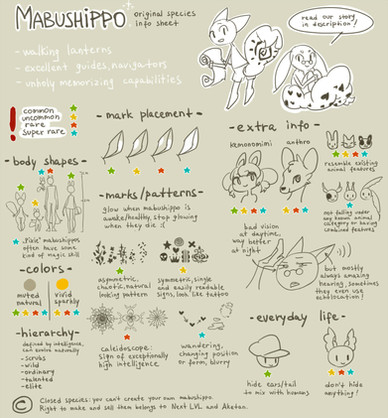 MABUSHIPPO
original species
info sheet
- walking lanterns
- excellent guides, navigators
- unholy memorizing capabilities
read our story
in description!
common
uncommon
rare
super rare
- mark placement -
- extra info -
kemonomimi
anthro
resemble existing
animal features
not falling under
any known animal
category or having
combined features
- body shapes -
"Pixie" mabushippos
often have some
kind of magic skill
- marks/patterns -
glow when mabushippo is
awake/healthy, stop glowing
when they die :(
asymmetric,
chaotic, natural
looking pattern
symmetric, single
and easily readable
signs, look like tattoo
bad vision
at daytime,
way better
at night
but mostly
always amazing
hearing, sometimes
they even use
echolocation!
- colors -
muted
natural
vivid
sparkly
- hierarchy -
defined by intelligence,
can evolve naturally
- scrubs
- wild
- ordinary
- talented
- elite
caleidoscope:
sign of exceptionally
high intelligence
wandering,
changing position
or form, blurry
- everyday life -
hide ears/tail
to mix with humans
don't hide
anything!
© Closed species: you can't create your own mabushippo.
Right to make and sell them belongs to Next LVL and Aketan.